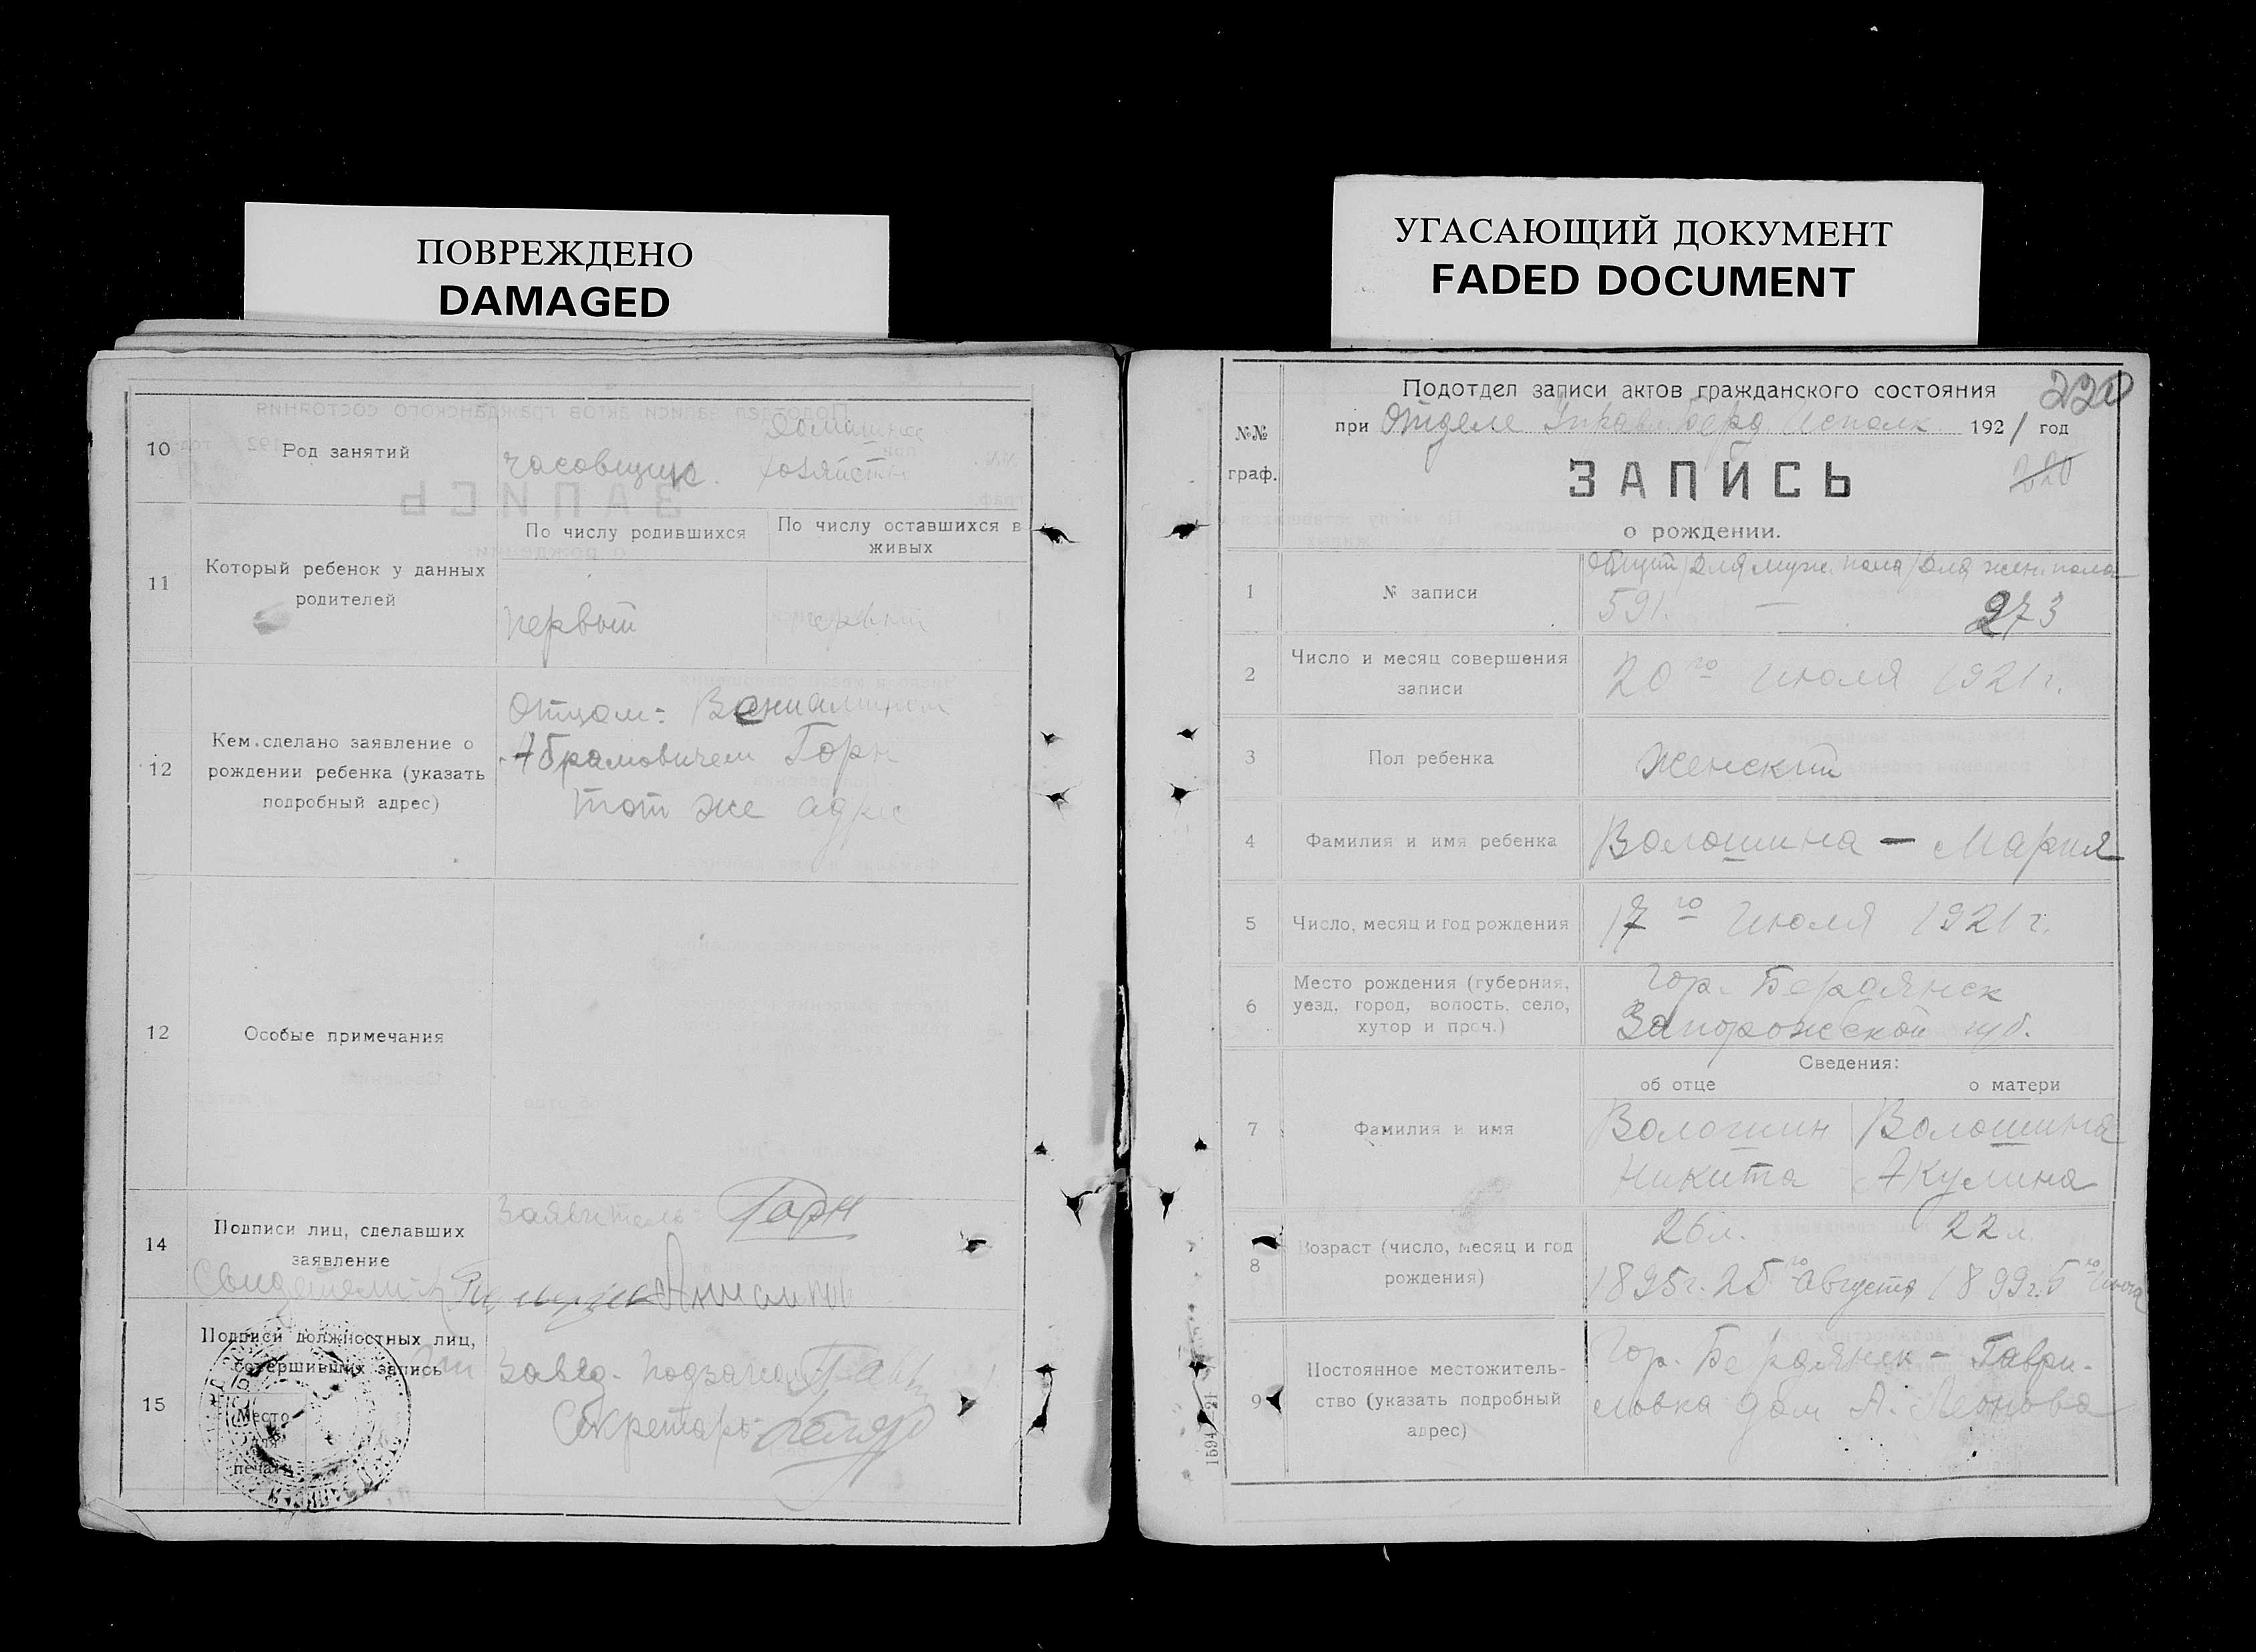 ПОВРЕЖДЕНО
DAMAGED
10
Род занятий
часовщик.
домашнее
хозяйство
11
Который ребенок у данных
родителей
По числу родившихся
По числу оставшихся в
живых
первый
первый
12
Кем сделано заявление о
рождении ребенка (указать
подробный адрес)
отцом: Вениамином
Абрамовичем Горн
тот же адрес
12
Особые примечания
14
Подписи лиц, сделавших
заявление
Заявитель: Горн
Свидетели:
15
Подписи должностных лиц,
совершивших запись
Место
для
печати
Завед. подзаг
Секретарь
УГАСАЮЩИЙ ДОКУМЕНТ
FADED DOCUMENT
220
№№
граф.
Подотдел записи актов гражданского состояния
при Отделе Управ. Берд. Исполк. 1921 год
ЗАПИСЬ
220
о рождении.
1
№ записи
Общий / Для муж. пола / Для жен. пола
591. — 273
2
Число и месяц совершения
записи
20го Июля 1921 г.
3
Пол ребенка
Женский
4
Фамилия и имя ребенка
Волошина — Мария
5
Число, месяц и год рождения
17го Июля 1921 г.
6
Место рождения (губерния,
уезд, город, волость, село,
хутор и проч.)
Гор. Бердянск
Запорожской губ.
7
Фамилия и имя
Сведения:
об отце
о матери
Волошин
Никита
Волошина
Акулина
8
Возраст (число, месяц и год
рождения)
26 л.
22 л.
1895 г. 25го Августа
1899 г. 5го
9
Постоянное местожитель-
ство (указать подробный
адрес)
Гор. Бердянск - Гаври-
ловка дом А. Леонова
1594-21